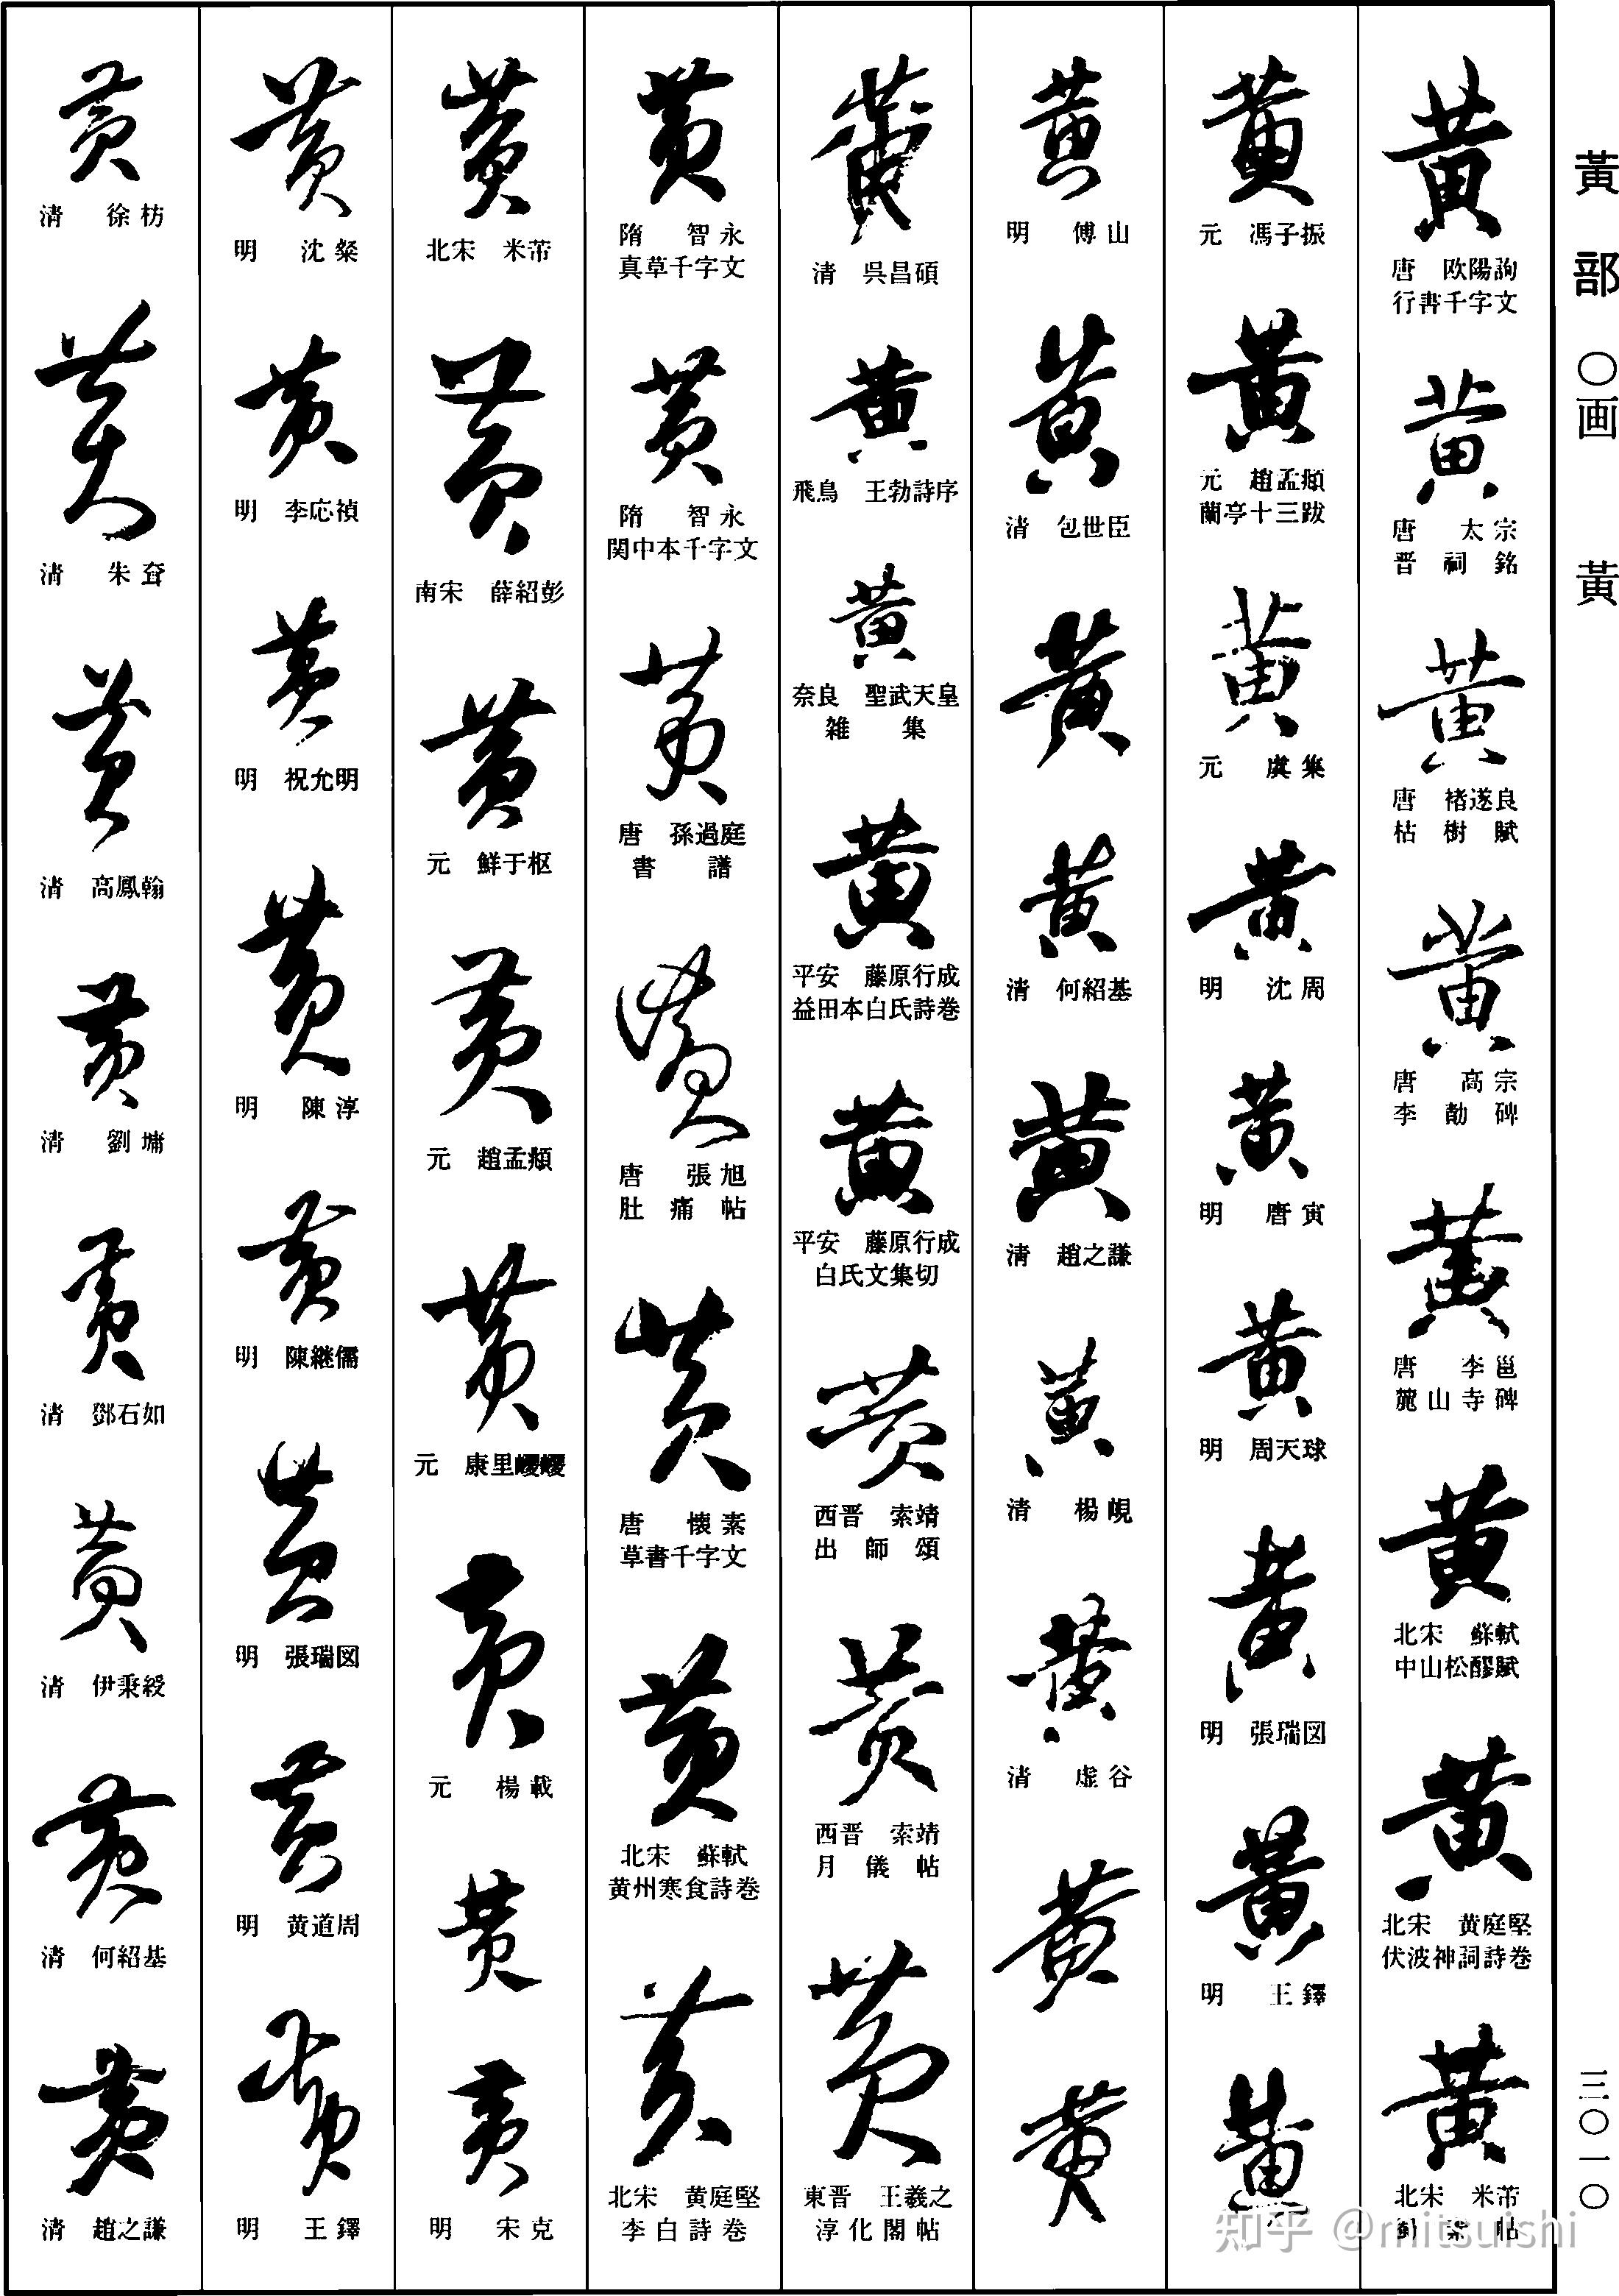 黃部 〇画 黃
三〇一〇
黄
唐 欧陽詢
行書千字文
黄
唐 太宗
晋祠銘
黄
唐 褚遂良
枯樹賦
黄
唐 高宗
李勣碑
黄
唐 李邕
麓山寺碑
黄
北宋 蘇軾
中山松醪賦
黄
北宋 黄庭堅
伏波神祠詩巻
黄
北宋 米芾
蜀素帖
黄
元 馮子振
黄
元 趙孟頫
蘭亭十三跋
黄
元 虞集
黄
明 沈周
黄
明 唐寅
黄
明 周天球
黄
明 張瑞図
黄
明 王鐸
黄
黄
明 傅山
黄
清 包世臣
黄
黄
清 何紹基
黄
清 趙之謙
黄
清 楊峴
黄
清 虚谷
黄
黄
黄
清 呉昌碩
黄
飛鳥 王勃詩序
黄
奈良 聖武天皇
雑集
黄
平安 藤原行成
益田本白氏詩巻
黄
平安 藤原行成
白氏文集切
黄
西晋 索靖
出師頌
黄
西晋 索靖
月儀帖
黄
東晋 王羲之
淳化閣帖
黄
隋 智永
真草千字文
黄
隋 智永
関中本千字文
黄
唐 孫過庭
書譜
黄
唐 張旭
肚痛帖
黄
唐 懐素
草書千字文
黄
北宋 蘇軾
黄州寒食詩巻
黄
北宋 黄庭堅
李白詩巻
黄
北宋 米芾
黄
南宋 薛紹彭
黄
元 鮮于枢
黄
元 趙孟頫
黄
元 康里巙巙
黄
元 楊載
黄
黄
明 宋克
黄
明 沈粲
黄
明 李応禎
黄
明 祝允明
黄
明 陳淳
黄
明 陳継儒
黄
明 張瑞図
黄
明 黄道周
黄
明 王鐸
黄
清 徐枋
黄
清 朱耷
黄
清 高鳳翰
黄
清 劉墉
黄
清 鄧石如
黄
清 伊秉綬
黄
清 何紹基
黄
清 趙之謙
知乎 @mitsuishi